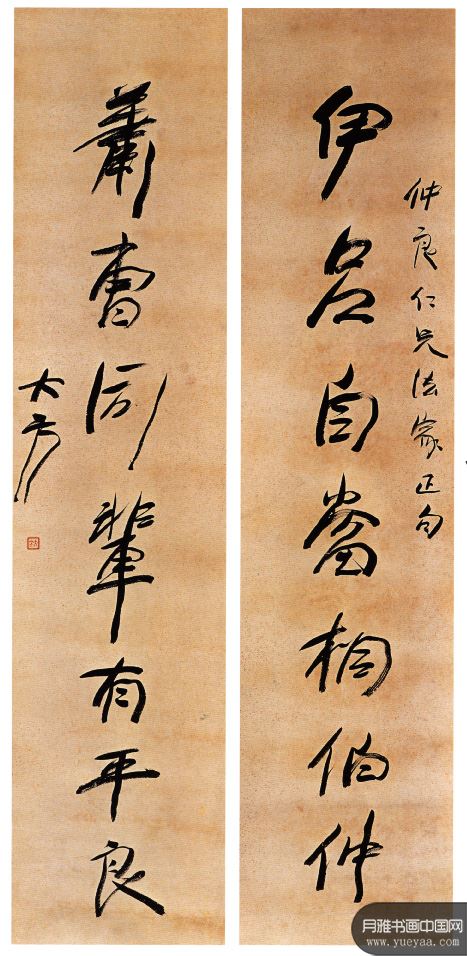 仲良仁兄法家正句
伊呂自當相伯仲
蕭曹同輩有平良
大方
月雅书画中国网
www.yueyaa.com